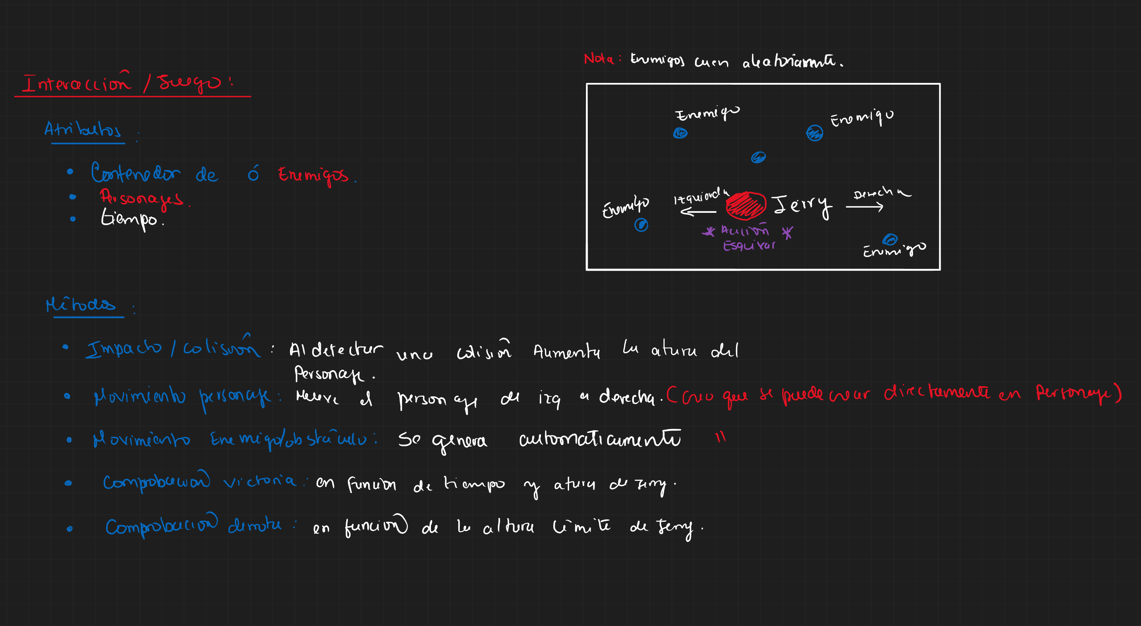 Interacción / Juego:
Atributos :
• Contenedor de ó Enemigos.
• Personajes.
• tiempo.
Nota: Enemigos caen aleatoriamente.
Enemigo
Enemigo
Enemigo
Izquierda
Jerry
Derecha
* Acción *
Esquivar
Enemigo
Métodos :
• Impacto / colisión : Al detectar una colisión Aumenta la atura del
Personaje.
• Movimiento personaje : Mueve el personaje de izq a derecha. (creo que se puede crear directamente en Personaje)
• Movimiento Enemigo/obstáculo : Se genera automaticamente "
• Comprobación victoria : en función de tiempo y atura de Jerry.
• Comprobación derrota : en función de la altura límite de Jerry.